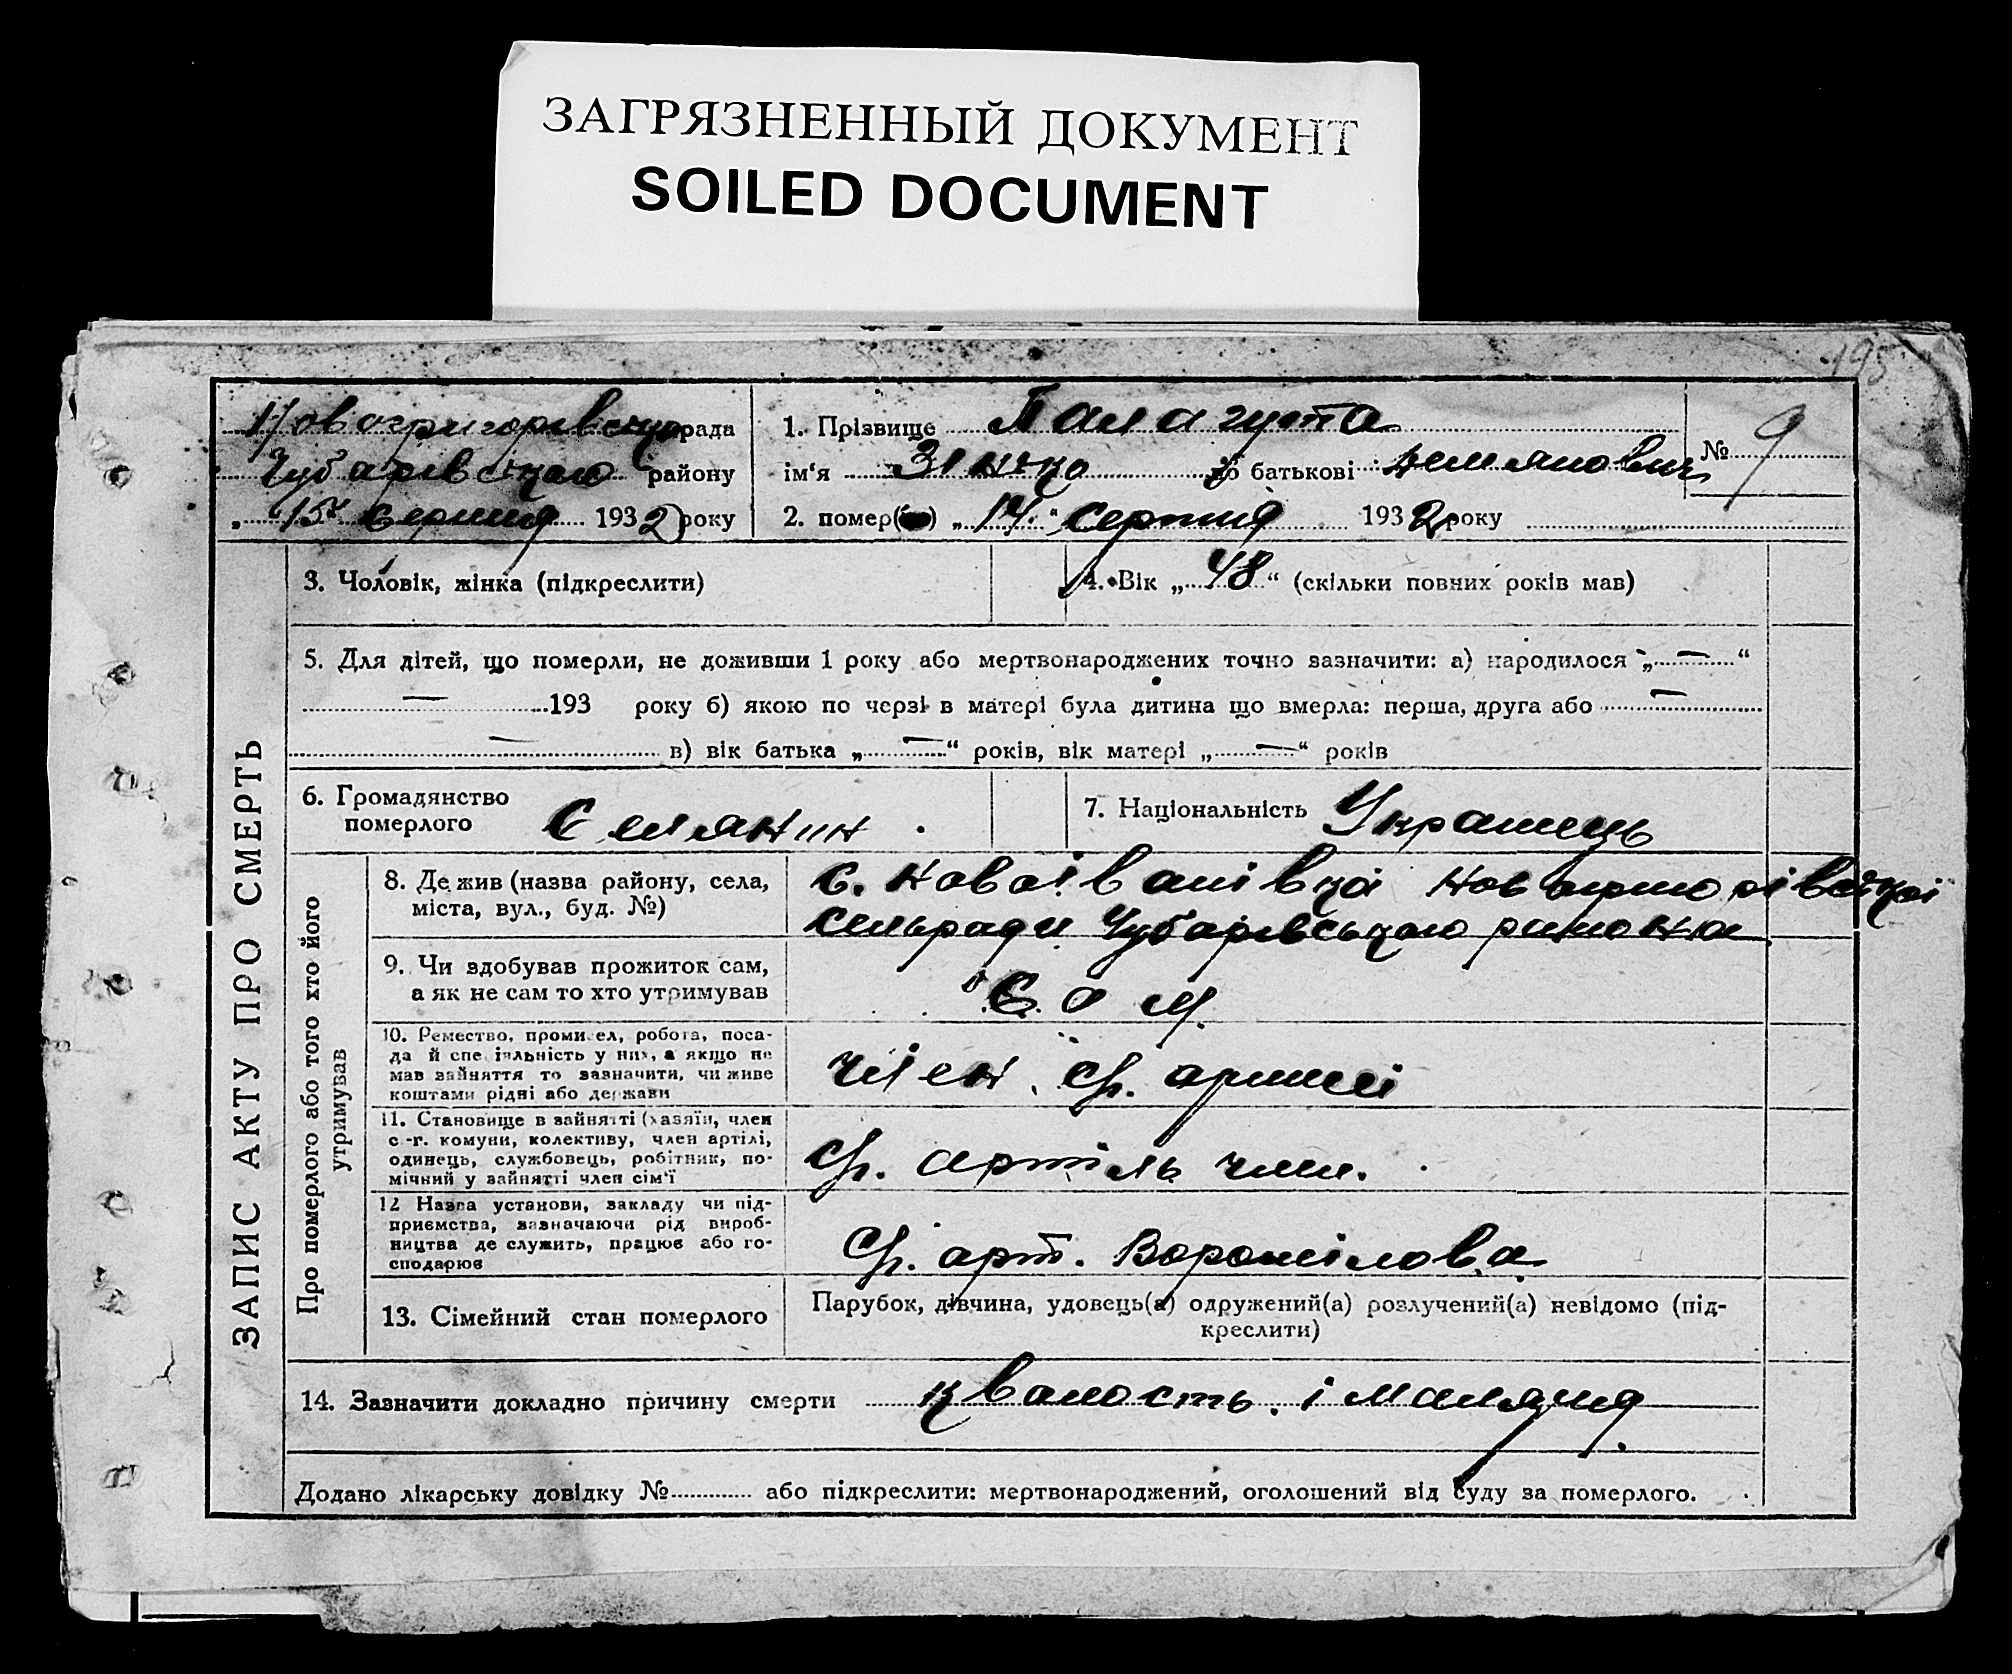 ЗАГРЯЗНЕННЫЙ ДОКУМЕНТ
SOILED DOCUMENT
195
рада
Чубарівського району
„ 15 " серпня 1932 року
1. Прізвище Палагута
ім'я Зінько по батькові Демянович
2. помер( ) „ 14 " серпня 1932 року
№ 9
ЗАПИС АКТУ ПРО СМЕРТЬ
3. Чоловік, жінка (підкреслити)
4. Вік „ 48 " (скільки повних років мав)
5. Для дітей, що померли, не доживши 1 року або мертвонароджених точно зазначити: а) народилося „ — "
— 193 року б) якою по черзі в матері була дитина що вмерла: перша, друга або —
— в) вік батька „ — " років, вік матері „ — " років
6. Громадянство
померлого Селянин
7. Національність Українець
Про померлого або того хто його
утримував
8. Де жив (назва району, села,
міста, вул., буд. №)
с. Новоіванівкаі
сельради Чубарівського района
9. Чи здобував прожиток сам,
а як не сам то хто утримував
Сам
10. Ремество, промисел, робота, поса-
да й спеціяльність у них, а якщо не
мав зайняття то зазначити, чи живе
коштами рідні або держави
член с/г. артілі
11. Становище в зайнятті (хазяїн, член
с.-г. комуни, колективу, член артілі,
одинець, службовець, робітник, по-
мічний у зайнятті член сім'ї
с/г. артіль член.
12 Назва установи, закладу чи під-
приємства, зазначаючи рід вироб-
ництва де служить, працює або го-
сподарює
с/г. арт. Ворошілова
13. Сімейний стан померлого
Парубок, дівчина, удовець(а) одружений(а) розлучений(а) невідомо (під-
креслити)
14. Зазначити докладно причину смерти кволость і малярия
Додано лікарську довідку № або підкреслити: мертвонароджений, оголошений від суду за померлого.